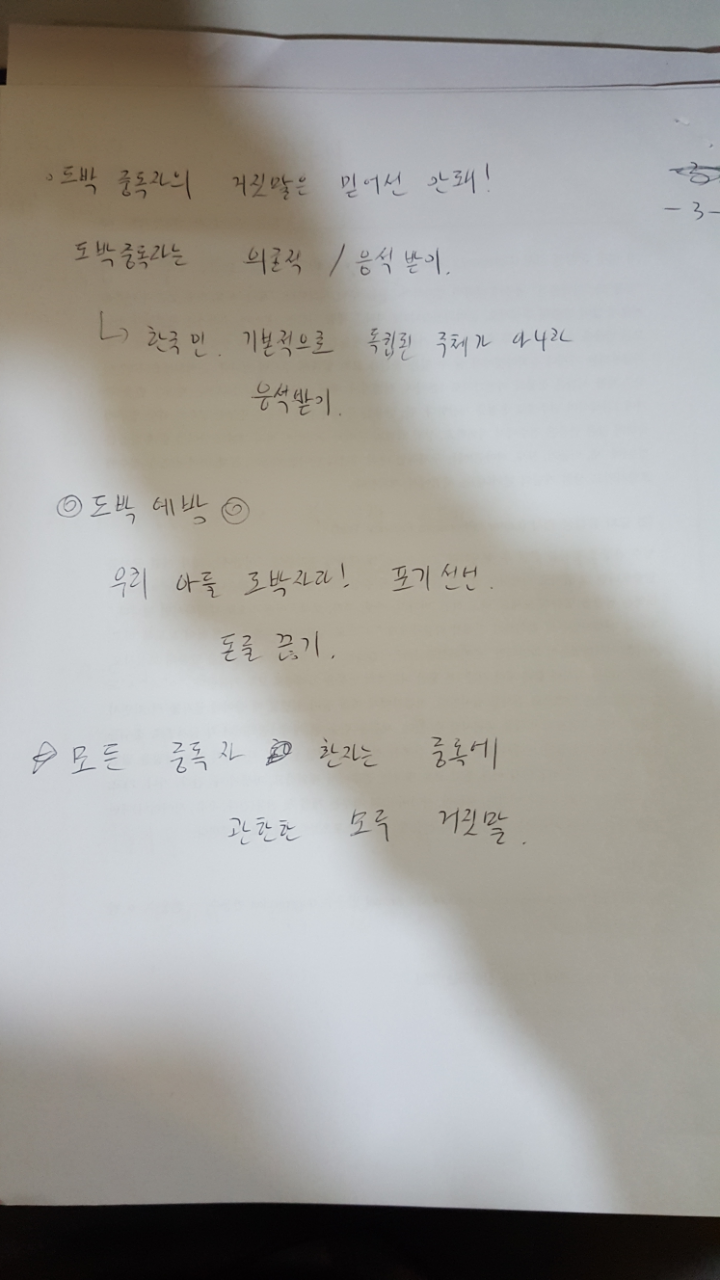 - 3 -
◦ 도박 중독자의 거짓말은 믿어선 안돼!
도박중독자는 의존적 / 응석받이.
↳ 한국인. 기본적으로 독립된 주체가 아니라
응석받이.
◎ 도박 예방 ◎
우리 아들 도박자다! 포기선언.
돈을 끊기.
☆ 모든 중독자 환자는 중독에
관한한 모두 거짓말.